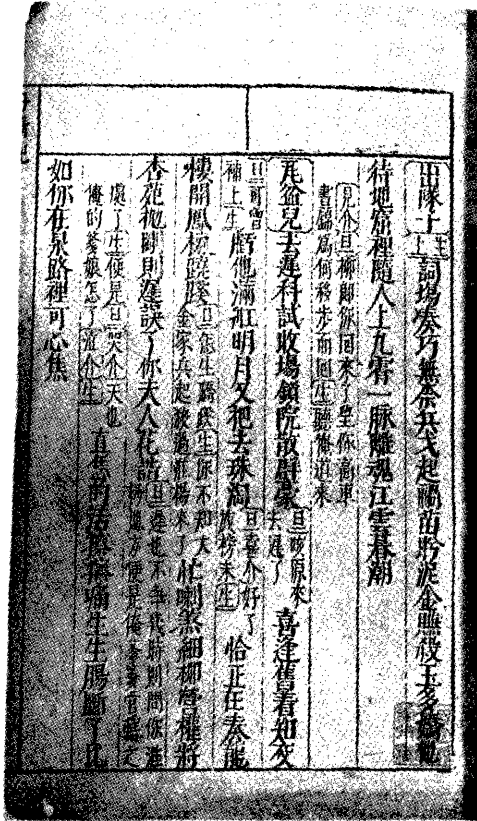 出隊子生上詞場湊巧無奈兵戈起禍苗盼泥金賺殺玉多嬌他
待地窟裡隨人上九霄一脉離魂江雲暮潮
見介旦柳郎你回來了望你高車
晝錦為何徒步而回生聽俺道來
瓦盆兒去遲科試收場鎖院散群豪旦咳原來去遲了喜逢舊着知交
旦可曾補上生虧他滿舡明月又把去珠淘旦喜介好了放榜未生恰正在奏龍
樓開鳳榜蹊蹺旦怎生蹺蹊生你不知大金家兵起殺過淮揚來了忙喇煞細柳營權將
杏苑抛剛則遲誤了你夫人花誥旦遲也不爭幾時則問你淮揚地方便是俺爹爹管轄之
處了生便是旦哭介天也俺的爹娘怎了泣介生直恁的活擦擦痛生生腸斷了比
如你在泉路裡可心焦